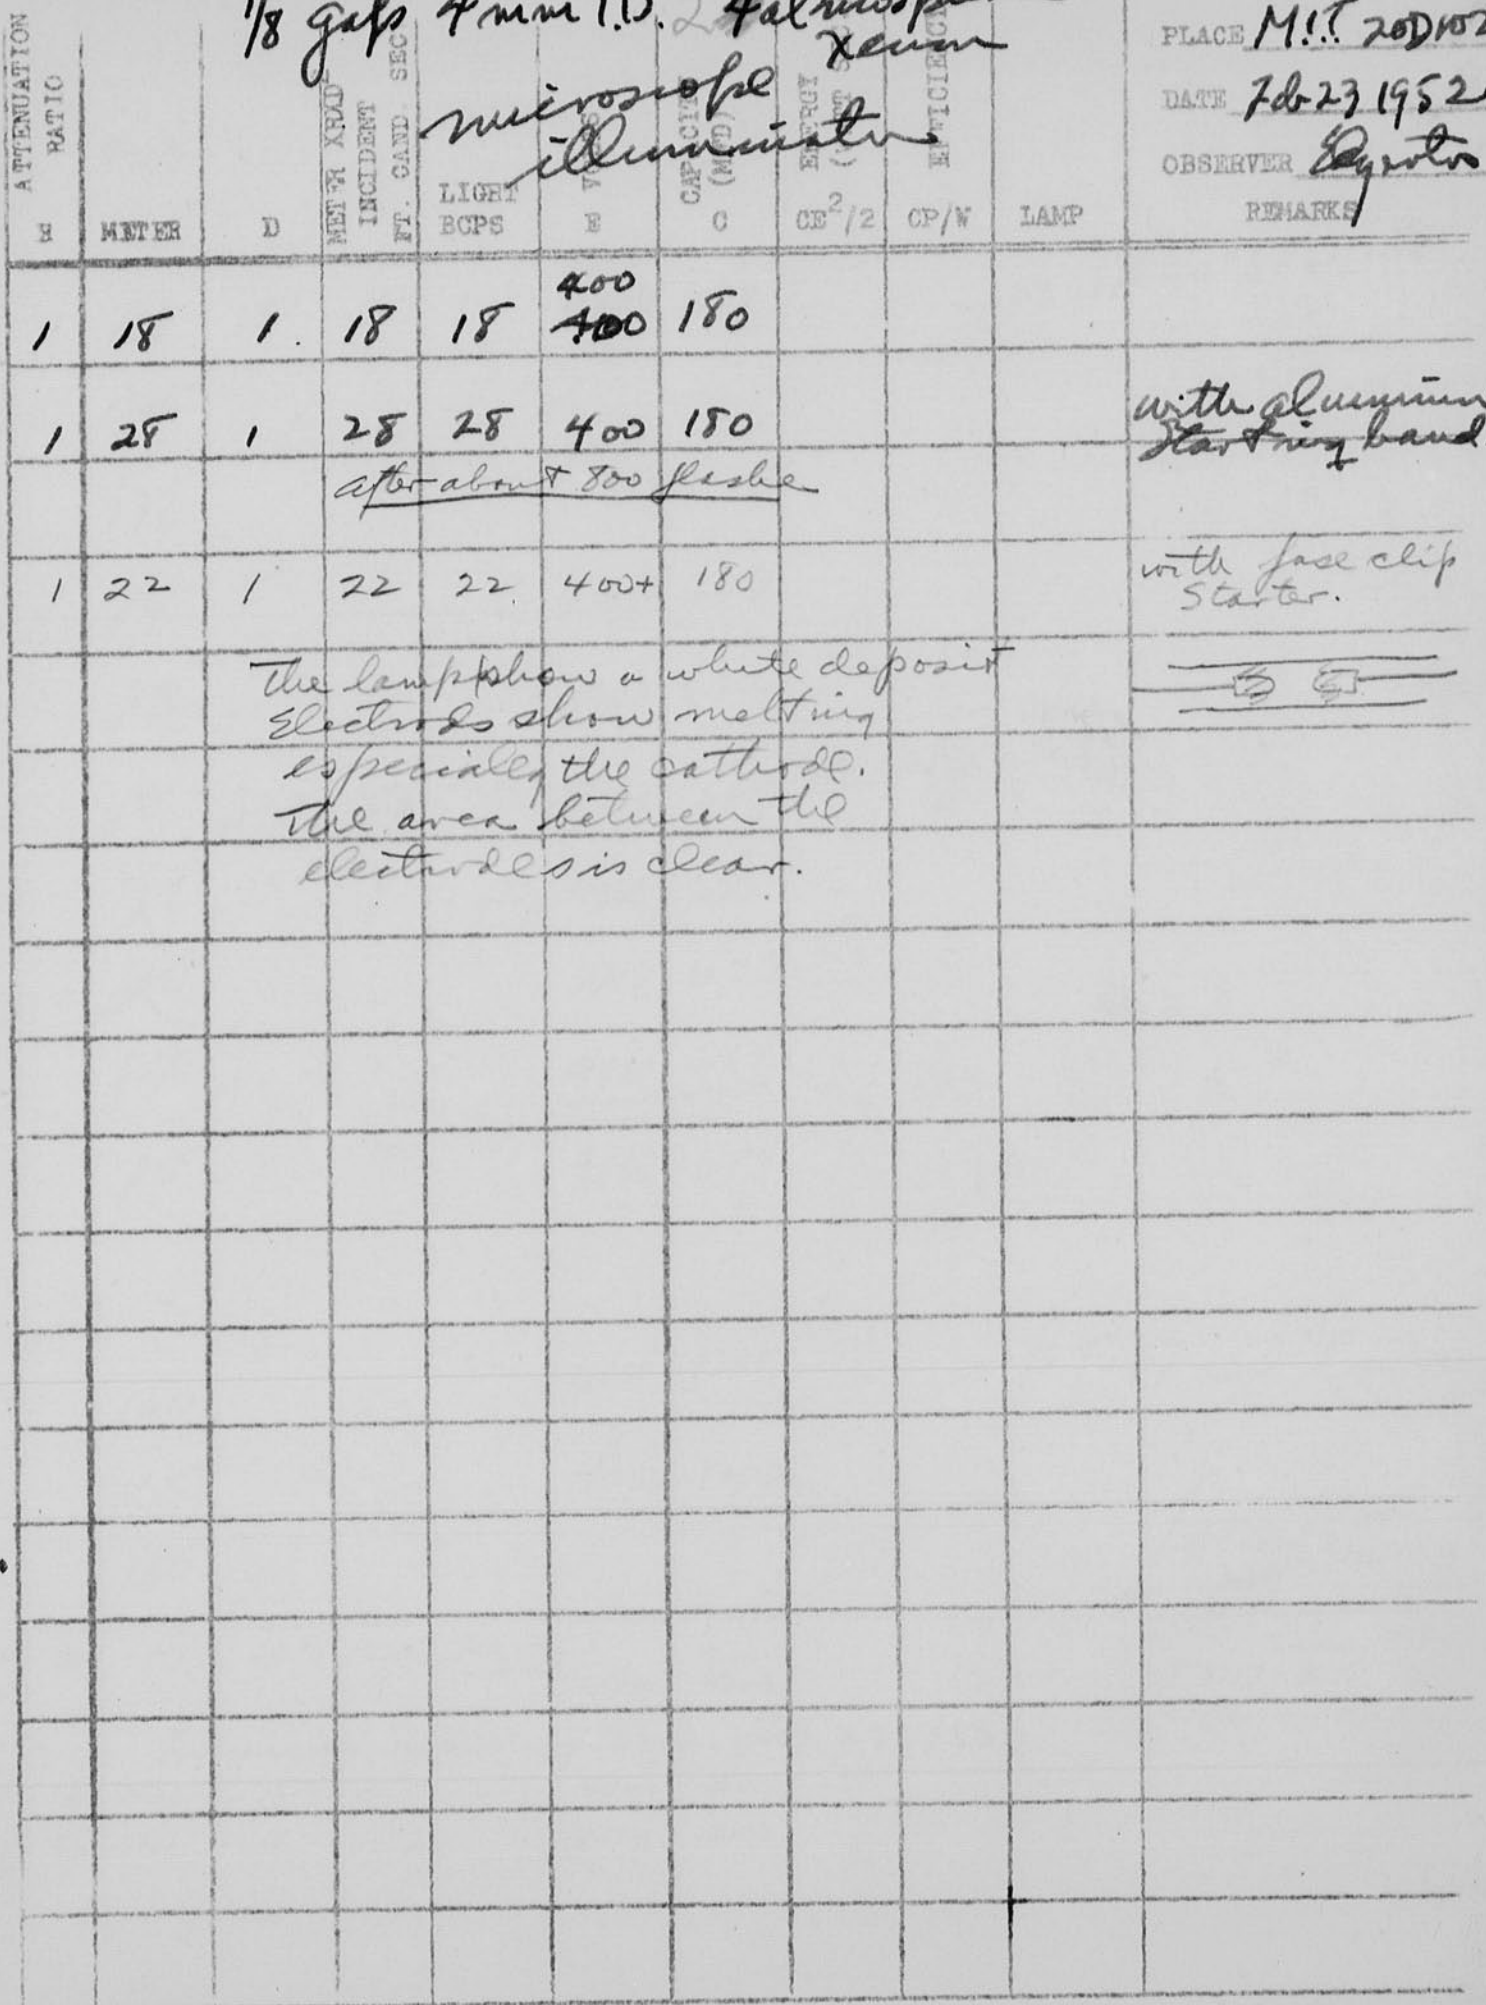 1/8 gaps 4 mm I.D. 4
xenon
microscope
illuminator
PLACE M.I.T. 20D102
DATE Feb 23 1952
OBSERVER
ATTENUATION RATIO
METER
D
METER XRAD
INCIDENT
FT. CAND SEC
LIGHT
BCPS
E
CAPACITY
(MFD)
C
ENERGY
CE²/2
EFFICIENCY
CP/W
LAMP
REMARKS
1 18 1. 18 18 400 180
1 28 1 28 28 400 180 with aluminum
starting band
after about 800 flashe
1 22 1 22 22 400+ 180 with fuse clip
Starter.
The lamp show a white deposit
Electrods show melting
especialey the cathode.
The area between the
electrodes is clear.